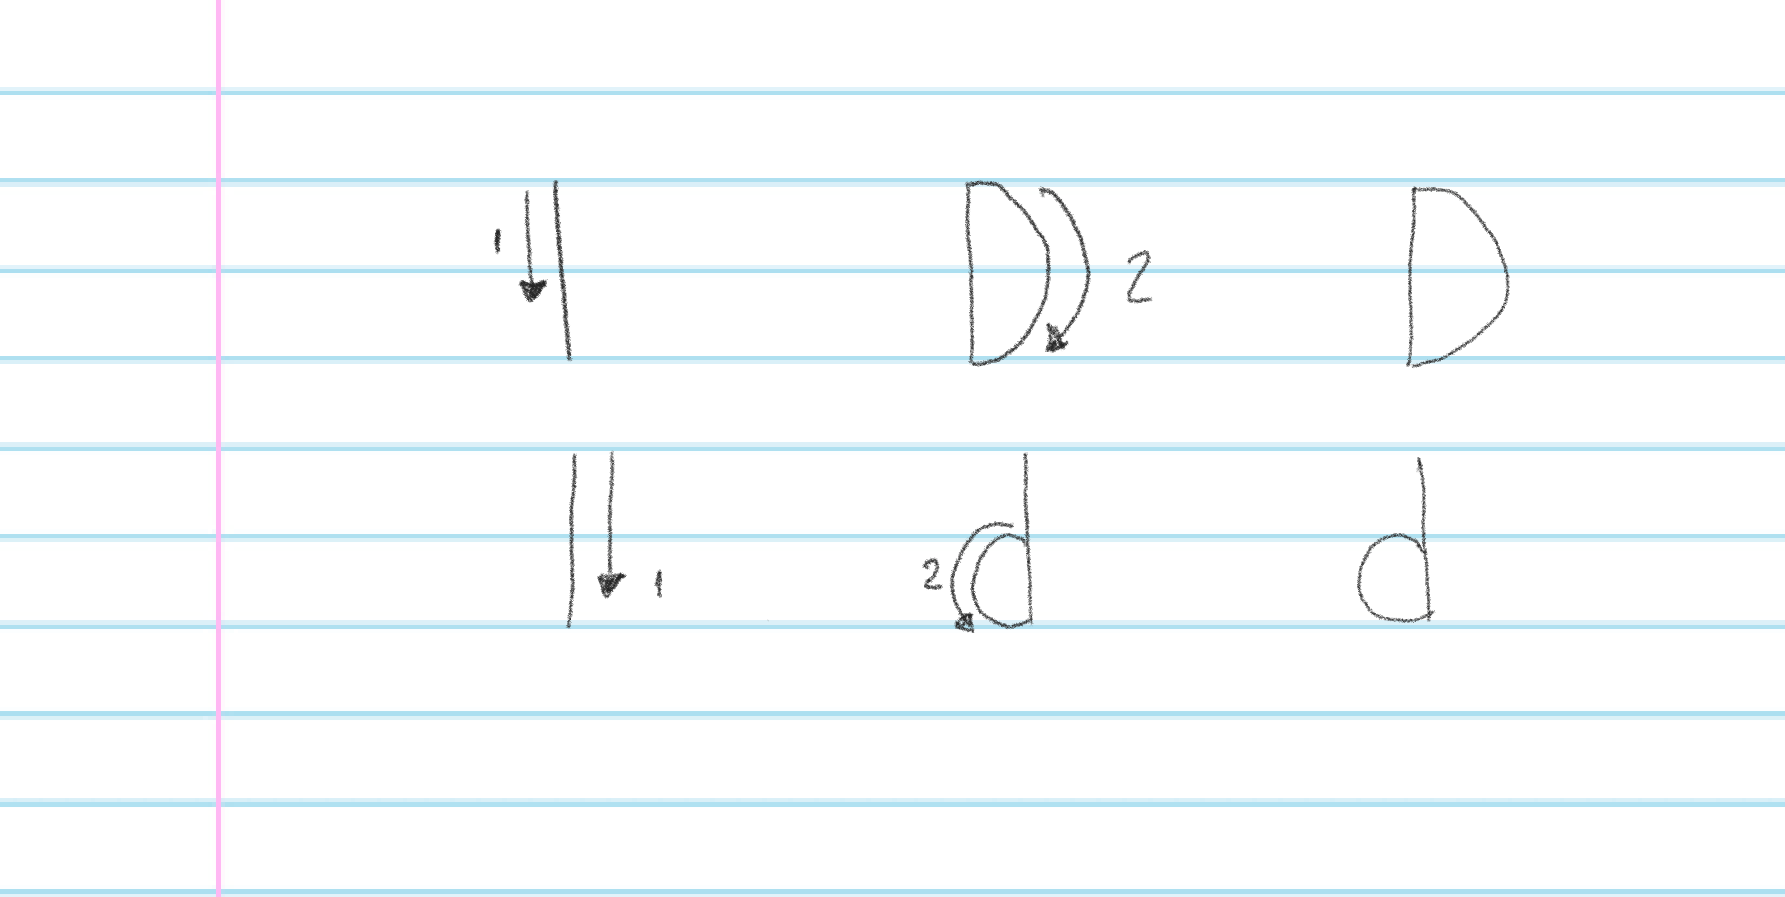 1 D 2 D
1 2 d d